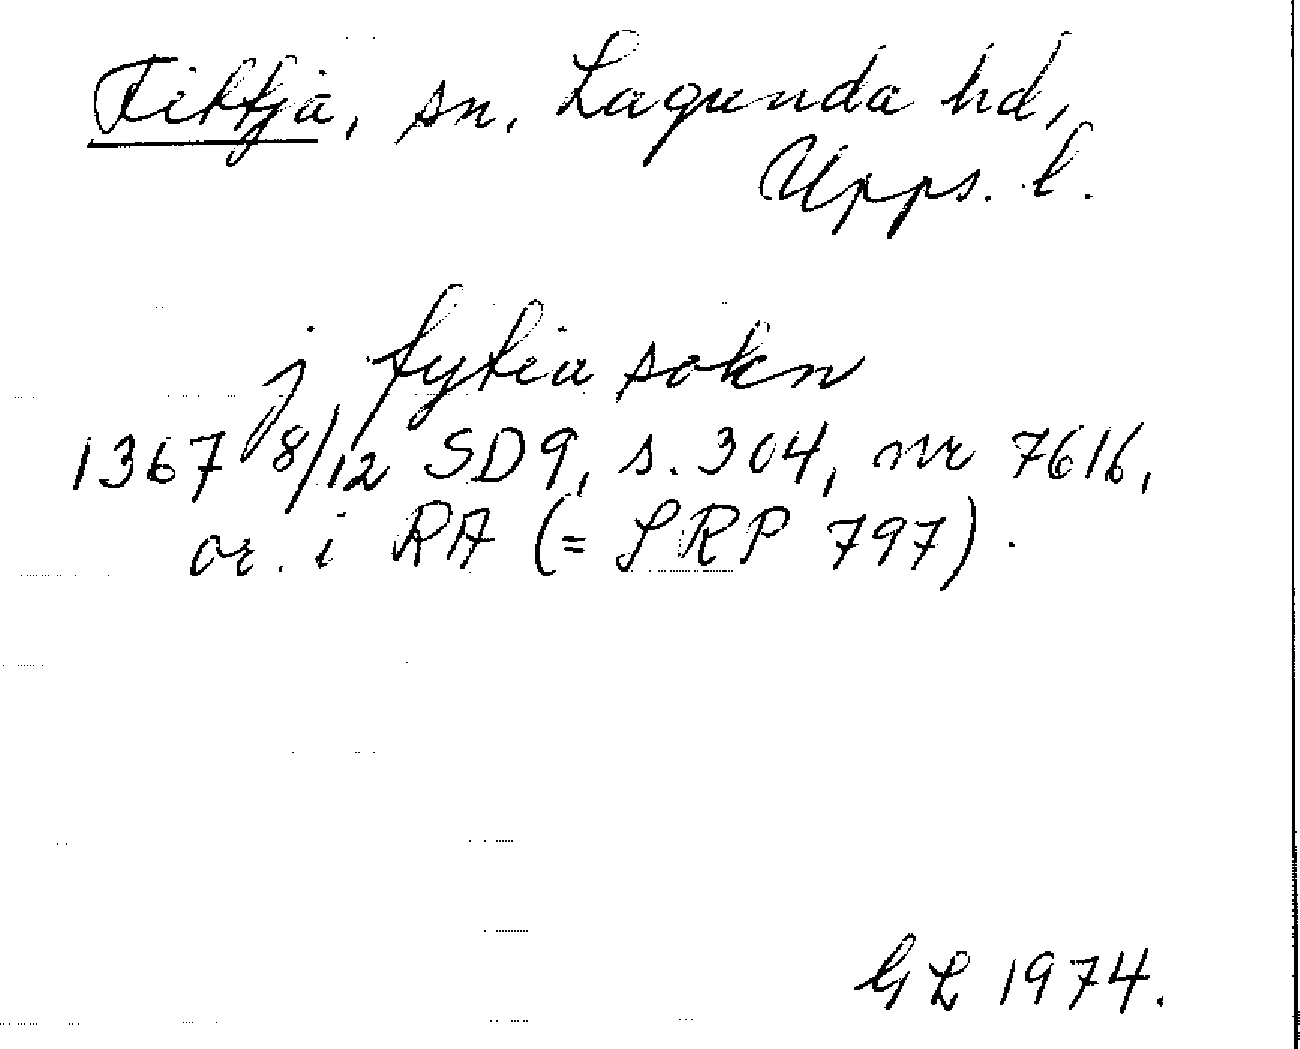 Fittja, sn, Lagunda hd,
Upps. l.
j fytia sokn
1367 8/12 SD9, s. 304, nr 7616,
or. i RA (= SRP 797).
GL 1974.